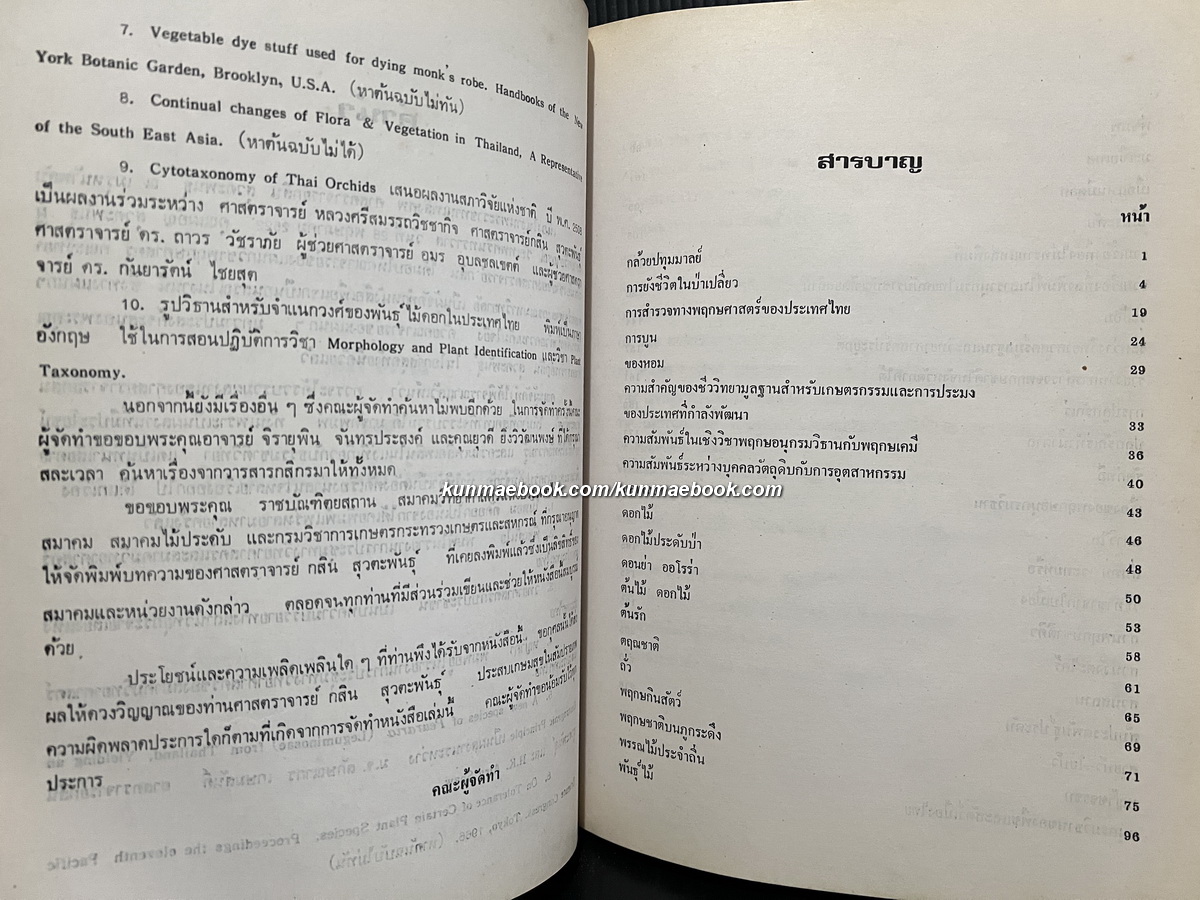 7. Vegetable dye stuff used for dying monk's robe. Handbooks of the New
York Botanic Garden, Brooklyn, U.S.A. (หาต้นฉบับไม่ทัน)
8. Continual changes of Flora & Vegetation in Thailand, A Representative
of the South East Asia. (หาต้นฉบับไม่ได้)
9. Cytotaxonomy of Thai Orchids เสนอผลงานสภาวิจัยแห่งชาติ ปี พ.ศ. 2508
เป็นผลงานร่วมระหว่าง ศาสตราจารย์ หลวงศรีสมรรถวิชชากิจ ศาสตราจารย์กสิน สุวตะพันธุ์
ศาสตราจารย์ ดร. ถาวร วัชราภัย ผู้ช่วยศาสตราจารย์ อมร อุบลชลเขตต์ และผู้ช่วยศาสตรา
จารย์ ดร. กันยารัตน์ ไชยสุต
10. รูปวิธานสำหรับจำแนกวงศ์ของพันธุ์ไม้ดอกในประเทศไทย พิมพ์เป็นภาษา
อังกฤษ ใช้ในการสอนปฏิบัติการวิชา Morphology and Plant Identification และวิชา Plant
Taxonomy.
นอกจากนี้ยังมีเรื่องอื่น ๆ ซึ่งคณะผู้จัดทำค้นหาไม่พบอีกด้วย ในการจัดทำครั้งนี้คณะ
ผู้จัดทำขอขอบพระคุณอาจารย์ จิรายุพิน จันทรประสงค์ และคุณยุวดี ยิ่งวิวัฒนพงษ์ ที่ได้กรุณา
สละเวลา ค้นหาเรื่องจากวารสารกสิกรมาให้ทั้งหมด
ขอขอบพระคุณ ราชบัณฑิตยสถาน สมาคมวิทยาศาสตร์
สมาคม สมาคมไม้ประดับ และกรมวิชาการเกษตรกระทรวงเกษตรและสหกรณ์ ที่กรุณาอนุญาต
ให้จัดพิมพ์บทความของศาสตราจารย์ กสิน สุวตะพันธุ์ ที่เคยลงพิมพ์แล้วซึ่งเป็นลิขสิทธิ์ของ
สมาคมและหน่วยงานดังกล่าว ตลอดจนทุกท่านที่มีส่วนร่วมเขียนและช่วยให้หนังสือนี้สมบูรณ์
ด้วย
ประโยชน์และความเพลิดเพลินใด ๆ ที่ท่านพึงได้รับจากหนังสือนี้ ขอกุศลนั้นได้
ผลให้ดวงวิญญาณของท่านศาสตราจารย์ กสิน สุวตะพันธุ์ ประสบเกษมสุขในสัมปรายภพ
ความผิดพลาดประการใดก็ตามที่เกิดจากการจัดทำหนังสือเล่มนี้ คณะผู้จัดทำขอน้อมรับไว้ทุก
ประการ
คณะผู้จัดทำ
สารบาญ
หน้า
กล้วยปทุมมาลย์ 1
การยังชีวิตในป่าเปลี่ยว 4
การสำรวจทางพฤกษศาสตร์ของประเทศไทย 19
การบูน 24
ของหอม 29
ความสำคัญของชีววิทยามูลฐานสำหรับเกษตรกรรมและการประมง
ของประเทศที่กำลังพัฒนา 33
ความสัมพันธ์ในเชิงวิชาพฤกษอนุกรมวิธานกับพฤกษเคมี 36
ความสัมพันธ์ระหว่างบุคคลวัตถุดิบกับการอุตสาหกรรม 40
ดอกไม้ 43
ดอกไม้ประดับป่า 46
ดอนย่า ออโรร่า 48
ต้นไม้ ดอกไม้ 50
ต้นรัก 53
ตฤณชาติ 58
ถั่ว 61
พฤกษกินสัตว์ 65
พฤกษชาติบนภูกระดึง 69
พรรณไม้ประจำถิ่น 71
พันธุ์ไม้ 75
96
kunmaebook.com/kunmaebook.com